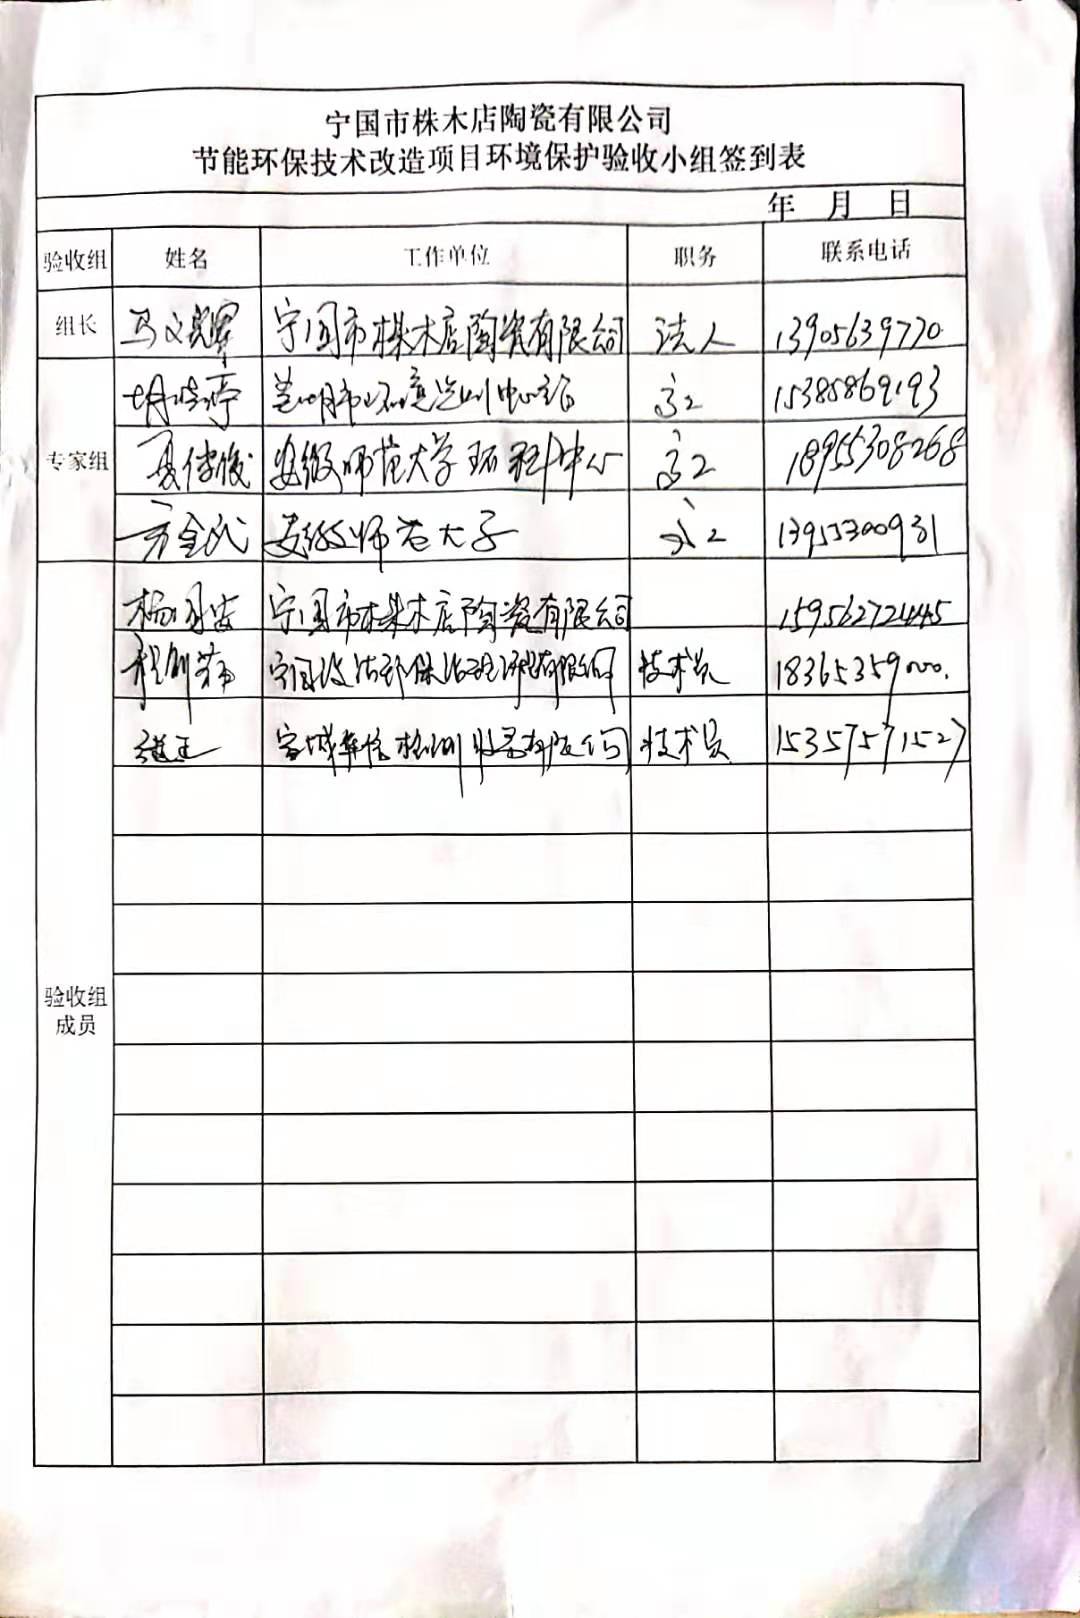 宁国市株木店陶瓷有限公司
节能环保技术改造项目环境保护验收小组签到表
年 月 日
验收组 姓名 工作单位 职务 联系电话
组长 马文辉 宁国市株木店陶瓷有限公司 法人 13905639770
专家组
15385869193
安徽师范大学环科中心 高工 18955308268
方金武 安徽师范大学 高工 13955300931
验收组
成员
杨国安 宁国市株木店陶瓷有限公司 15956272445
技术员 18365359000
技术员 15357571527